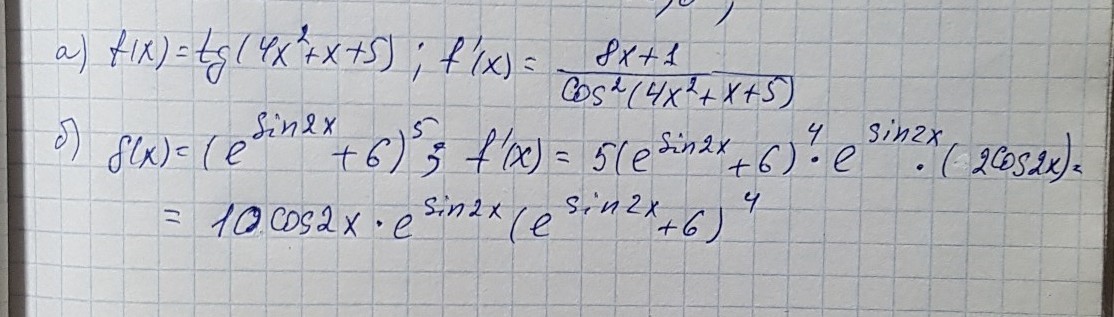 а) f(x)=tg(4x²+x+5) ; f'(x) = (8x+1)/(cos²(4x²+x+5))
б) f(x)= (e^(sin2x) +6)⁵; f'(x) = 5(e^(sin2x) +6)⁴ · e^(sin2x) · (2cos2x)=
= 10cos2x · e^(sin2x) (e^(sin2x) +6)⁴